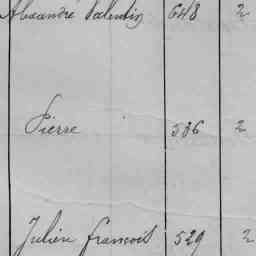 Alexandre Valentin 648 2
Pierre 536 2
Julien françois 529 2